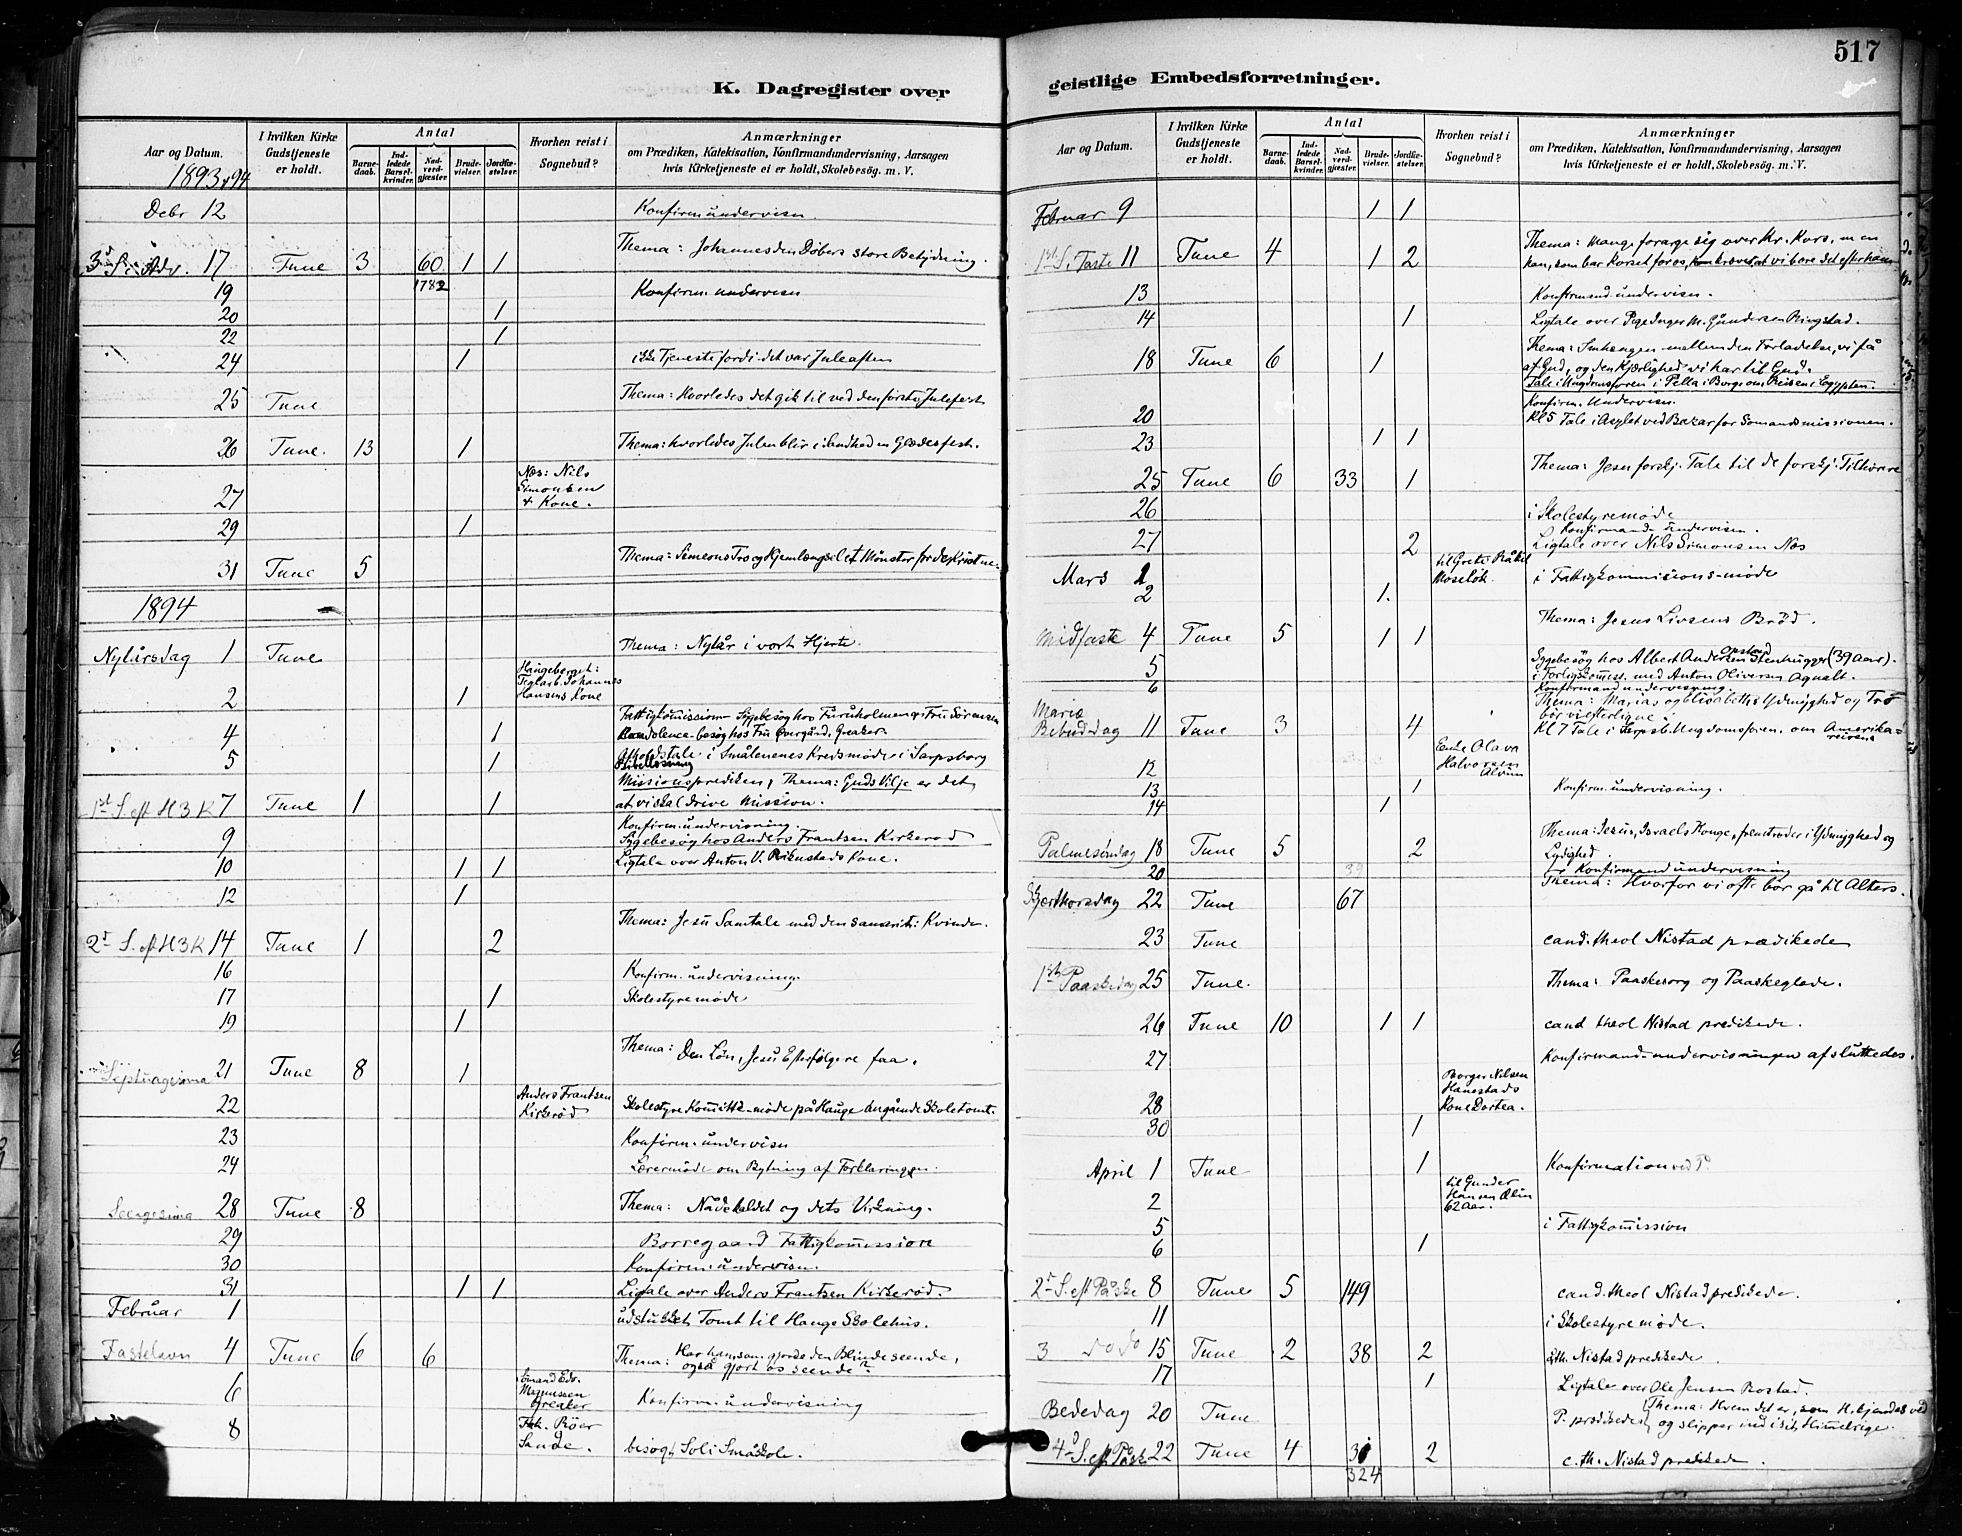 517
K. Dagregister over
geistlige Embedsforretninger.
Aar og Datum.
I hvilken Kirke Gudstjeneste er holdt.
Antal
Barne-daab.
Ind-ledede Barsel-kvinder.
Nad-verd-gjæster.
Brude-vielser.
Jordfæ-stelser.
Hvorhen reist i Sognebud?
Anmærkninger
om Prædiken, Katekisation, Konfirmandundervisning, Aarsagen
hvis Kirketjeneste ei er holdt, Skolebesøg. m. V.
1893 & 94
Debr 12 Konfirm undervisn.
Thema: Johannes den Døbers store Betydning.
3d S. i Adv. 17 Tune 3 60 1 1
1782
19 Konfirm. undervisn
20 1
22 1
24 1 ikke Tjeneste fordi det var Juleaften
25 Tune Thema: Hvorledes det gik til ved den første Julefest
26 Tune. 13 1 Thema: hvorledes Julen blir i Sandhed en Glædesfest.
27 Næs: Nils
Simonsen
& Kone.
29 1
31 Tune 5 Thema: Simeons Tro og Hjemlængsel et Mønster for de Kristne.
1894
Nytårsdag 1 Tune Thema: Nytår i vort Hjerte
2 1 Haugeberget:
Teglarb. Johannes
Hansens Kone
4 1 Fattigkomission Sygebesøg hos Furuholmen & Fru Sørensen
Kondolence-besøg hos Fru Overgård, Greaker
5 1 Afholdstale i Smålenenes Kredsmøde i Sarpsborg
Bibellæsning
Missionsprediken, Thema: Guds Vilje er det
1st S. eft H 3 K 7 Tune 1 1 at vi skal drive Mission.
9 Konfirm. undervisning.
Sygebesøg hos Anders Frantsen Kirkerød
10 1 1 Ligtale over Anton V. Rikustads Kone.
12 1
Thema: Jesu Samtale med den samarit: Kvinde.
2d S. eft H 3 K 14 Tune 1 2
16 Konfirm. undervisning
17 1 Skolestyremøde
19 1
Septuagesima 21 Tune 8 1 Thema: Den Løn, Jesu Efterfølgere faa.
22 Anders Frantsen
Kirkerød Skolestyre Komitte-møde på Hauge angående Skoletomt.
23 Konfirm. undervisn
24 Lærermøde om Bytning af Forklaringen.
Sexagesima 28 Tune 8 Thema: Nådekaldet og dets Virkning.
29 Borregaard Fattigkomission
30 Konfirm. undervisn.
31 1 1 Ligtale over Anders Frantsen Kirkerød.
Februar 1 udstukket Tomt til Hauge Skolehus.
Fastelavn 4 Tune 6 6 Thema: Har han som gjorde den Blinde seende,
også gjort os seende?
6 Edv.
Magnussen
Greaker Konfirm. undervisning
8 Fab. Röer
Sande. besøgt Soli Småskole.
Aar og Datum.
I hvilken Kirke Gudstjeneste er holdt.
Antal
Barne-daab.
Ind-ledede Barsel-kvinder.
Nad-verd-gjæster.
Brude-vielser.
Jordfæ-stelser.
Hvorhen reist i Sognebud?
Anmærkninger
om Prædiken, Katekisation, Konfirmandundervisning, Aarsagen
hvis Kirketjeneste ei er holdt, Skolebesøg. m. V.
Februar 9 1 1
1st S. i Faste 11 Tune 4 1 2 Thema: Mange forarge sig over Kr. Kors, men
han, som bar Korset for os, kræver, at vi bære det efter ham
13 Konfirmand undervisn.
14 1 Ligtale over Pige Inger M. Gundersen Ringstad.
18 Tune 6 1 Thema: Smhængen mellem den Forladelse, vi få
af Gud, og den Kjærlighed vi har til Gud.
Tale i Ungdomsforen i Pella i Borge om Reisen i Egypten.
20 Konfirm. Undervisn.
Kl 5 Tale i Asylet ved Bazar for Sømandsmissionen.
23 1 1
25 Tune 6 33 1 Thema: Jesu forskj. Tale til de forskj. Tilhørere
26 i Skolestyremøde
Konfirmand-undervisn.
27 2 Ligtale over Nils Simonsen Næs
Mars 1 til Grete
Moseløk. i Fattigkommisions-møde
2 1.
Midfaste 4 Tune 5 1 1 Thema: Jesus Livsens Brød.
5 Sygebesøg hos Albert Andersen Opstad Stenhugger (39 aar).
6 i Forligskomiss. med Anton Oliversen Agnalt.
Konfirmandundervisning.
Thema: Marias og Elisabeths Ydmyghed og Tro
Mariæ
Bebud. dag 11 Tune 3 4 bør vi efterligne.
Kl 7 Tale i Sarpsb. Ungdomsforen. om Amerika-
reisen
12 Enke Olava
Halvorsen
Alvim
13 1 Konfirm. undervisning.
14 1
Palmesøndag 18 Tune 5 2 Thema: Jesus, Israels Konge, fremtræder i Ydmyghed og
Lydighed.
20 39 Konfirmandundervisning
Skjærthorsdag 22 Tune 67 Thema: Hvorfor vi ofte bør gå til Alters.
23 Tune cand. theol Nistad prædikede
1st Paaskedag 25 Tune. Thema: Paaskesorg og Paaskeglæde.
26 Tune 10 1 1 cand theol Nistad predikede.
27 Konfirmand-undervisningen afsluttedes.
28 Borger Nilsen
Hanestads
Kone Dortea.
30 1
April 1 Tune 1 Konfirmation ved P.
2 til Gunder
Hansen Ölin
62 aar.
5 i Fattigkomission
6 1
2d S. eft Påske 8 Tune 5 149 cand. theol Nistad predikede.
11 i Skolestyremøde.
3 do do 15 Tune 2 38 2 c. th. Nistad predikede.
17 1 Ligtale over Ole Jensen Bostad.
Bededag 20 Tune P. prædikede Thema: Hvem det er, som H. kjendes ved
og slipper ind i sit Himelrige.
4d S. eft Påske 22 Tune 4 2 c. th. Nistad predikede.
324